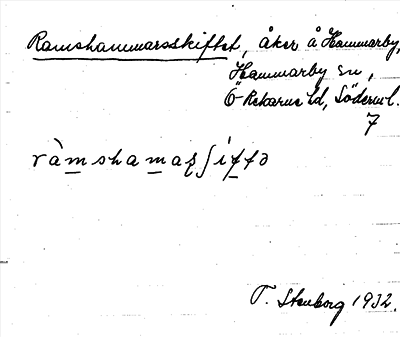 Ramshammarsskiftet, åker å Hammarby,
Hammarby sn,
Ö Rekarne hd, Söderml.
7
ràmshamaʂʃiftə
T. Stenborg 1932.